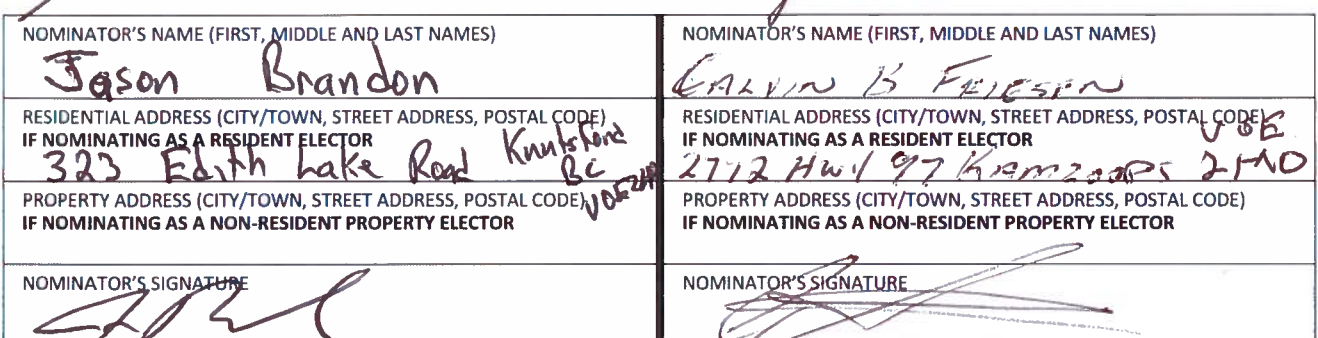 NOMINATOR'S NAME (FIRST, MIDDLE AND LAST NAMES)
Jason Brandon
RESIDENTIAL ADDRESS (CITY/TOWN, STREET ADDRESS, POSTAL CODE)
IF NOMINATING AS A RESIDENT ELECTOR
323 Edith Lake Road Knutsford
BC
PROPERTY ADDRESS (CITY/TOWN, STREET ADDRESS, POSTAL CODE)
IF NOMINATING AS A NON-RESIDENT PROPERTY ELECTOR
NOMINATOR'S SIGNATURE
NOMINATOR'S NAME (FIRST, MIDDLE AND LAST NAMES)
CALVIN B FRIESEN
RESIDENTIAL ADDRESS (CITY/TOWN, STREET ADDRESS, POSTAL CODE)
IF NOMINATING AS A RESIDENT ELECTOR
V0E
2712 Hwy 97 KAMLOOPS
PROPERTY ADDRESS (CITY/TOWN, STREET ADDRESS, POSTAL CODE)
IF NOMINATING AS A NON-RESIDENT PROPERTY ELECTOR
NOMINATOR'S SIGNATURE